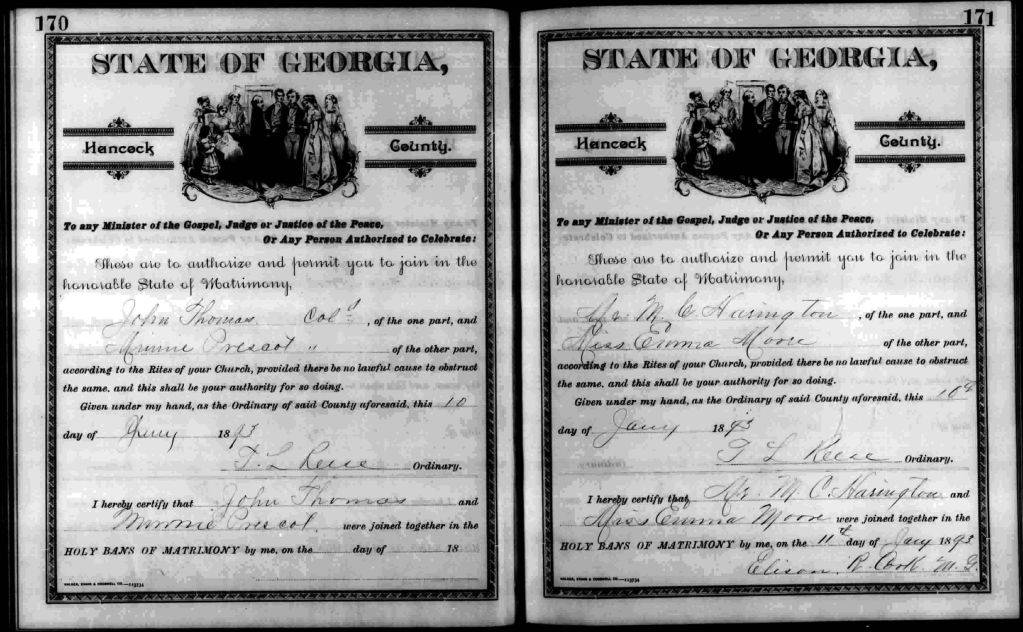 170
STATE OF GEORGIA,
Hancock County.
To any Minister of the Gospel, Judge or Justice of the Peace,
Or Any Person Authorized to Celebrate:
These are to authorize and permit you to join in the
honorable State of Matrimony,
John Thomas Col'd , of the one part, and
Minnie Prescot " of the other part,
according to the Rites of your Church, provided there be no lawful cause to obstruct
the same, and this shall be your authority for so doing.
Given under my hand, as the Ordinary of said County aforesaid, this 10
day of Jany 1893
T. L Reese Ordinary.
I hereby certify that John Thomas and
Minnie Prescot were joined together in the
HOLY BANS OF MATRIMONY by me, on the day of 18
171
STATE OF GEORGIA,
Hancock County.
To any Minister of the Gospel, Judge or Justice of the Peace,
Or Any Person Authorized to Celebrate:
These are to authorize and permit you to join in the
honorable State of Matrimony,
Mr. M. C. Harington , of the one part, and
Miss Emma Moore of the other part,
according to the Rites of your Church, provided there be no lawful cause to obstruct
the same, and this shall be your authority for so doing.
Given under my hand, as the Ordinary of said County aforesaid, this 10th
day of Jany 1893
T L Reese Ordinary.
I hereby certify that, Mr. M. C. Harington and
Miss Emma Moore were joined together in the
HOLY BANS OF MATRIMONY by me, on the 11th day of Jany 1893
Elison R. Cook M. G.